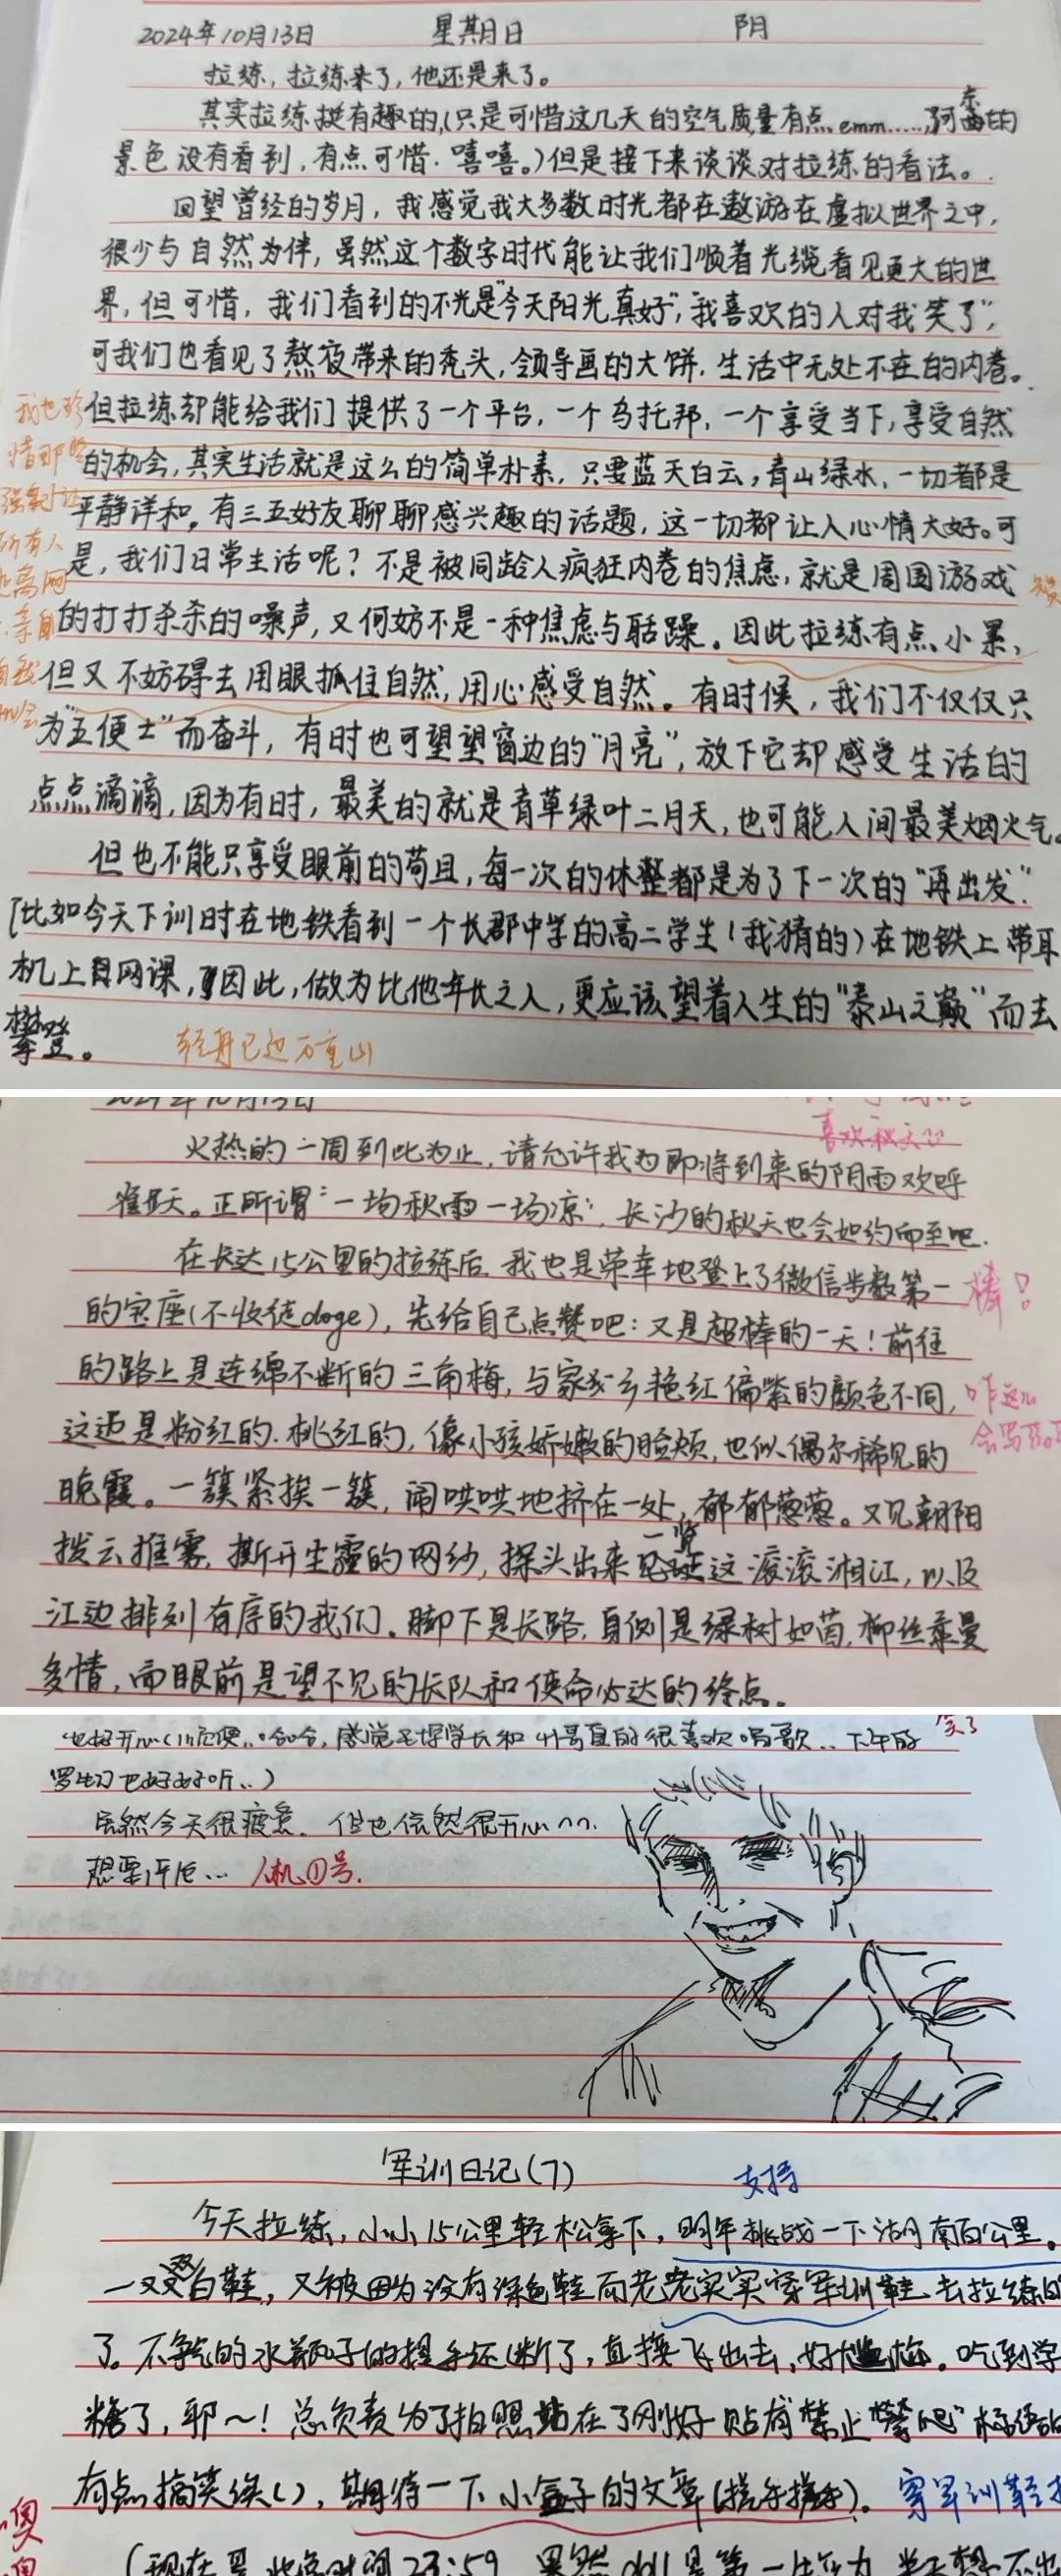 2024年10月13日 星期日 阴
拉练,拉练来了,他还是来了。
其实拉练挺有趣的,(只是可惜这几天的空气质量有点emm……,阿东的
景色没有看到,有点可惜.嘻嘻。)但是接下来谈谈对拉练的看法。
回望曾经的岁月,我感觉我大多数时光都在遨游在虚拟世界之中,
很少与自然为伴,虽然这个数字时代能让我们顺着光缆看见更大的世
界,但可惜,我们看到的不光是“今天阳光真好”,“我喜欢的人对我笑了”,
可我们也看见了熬夜带来的秃头,领导画的大饼,生活中无处不在的内卷。
但拉练却能给我们提供了一个平台,一个乌托邦,一个享受当下,享受自然
的机会,其实生活就是这么的简单朴素,只要蓝天白云,青山绿水,一切都是
平静洋和。有三五好友聊聊感兴趣的话题,这一切都让人心情大好。可
是,我们日常生活呢?不是被同龄人疯狂内卷的焦虑,就是周围游戏
的打打杀杀的噪声,又何妨不是一种焦虑与聒躁。因此拉练有点小累,
但又不妨碍去用眼抓住自然,用心感受自然。有时候,我们不仅仅只
为“五便士”而奋斗,有时也可望望窗边的“月亮”,放下它却感受生活的
点点滴滴,因为有时,最美的就是青草绿叶二月天,也可能人间最美烟火气。
但也不能只享受眼前的苟且,每一次的休整都是为了下一次的“再出发”.
[比如今天下训时在地铁看到一个长郡中学的高二学生(我猜的)在地铁上带耳
机上网课,因此,做为比他年长之人,更应该望着人生的“泰山之巅”而去
攀登。
我也珍
惜那些
所有人
轻舟已过万重山
2024年10月13日
喜欢秋天
火热的一周到此为止,请允许我为即将到来的阴雨欢呼
雀跃。正所谓“一场秋雨一场凉”,长沙的秋天也会如约而至吧.
在长达15公里的拉练后,我也是荣幸地登上了微信步数第一
的宝座(不收徒doge),先给自己点赞吧:又是超棒的一天!前往
棒!
的路上是连绵不断的三角梅,与家乡艳红偏紫的颜色不同,
咋这么
这边是粉红的.桃红的,像小孩娇嫩的脸颊,也似偶尔稀见的
会写
晚霞。一簇紧挨一簇,闹哄哄地挤在一处,郁郁葱葱。又见朝阳
拨云推雾,撕开尘霾的网纱,探头出来一览这滚滚湘江,以及
江边排列有序的我们。脚下是长路,身侧是绿树如茵,柳丝柔曼
多情,而眼前是望不见的长队和使命必达的终点。
哈哈,感觉学长和哥真的很喜欢唱歌..下午的
笑了
罗生刀也好好听..)
虽然今天很疲惫,但也依然很开心^^.
人机①号.
军训日记(7)
支持
今天拉练,小小15公里轻松拿下,明年挑战一下湖南百公里。
一双白鞋,又被因为没有深色鞋而老老实实穿军训鞋去拉练的
了。不争气的水瓶子的提手还断了,直接飞出去,好尴尬。吃到学
糖了,耶~!总负责为了拍照站在了刚好贴有“禁止攀爬”标语的
有点搞笑像(),期待一下小盒子的文章(搓手搓手)。
穿军训鞋
噢
(现在是北京时间23:59